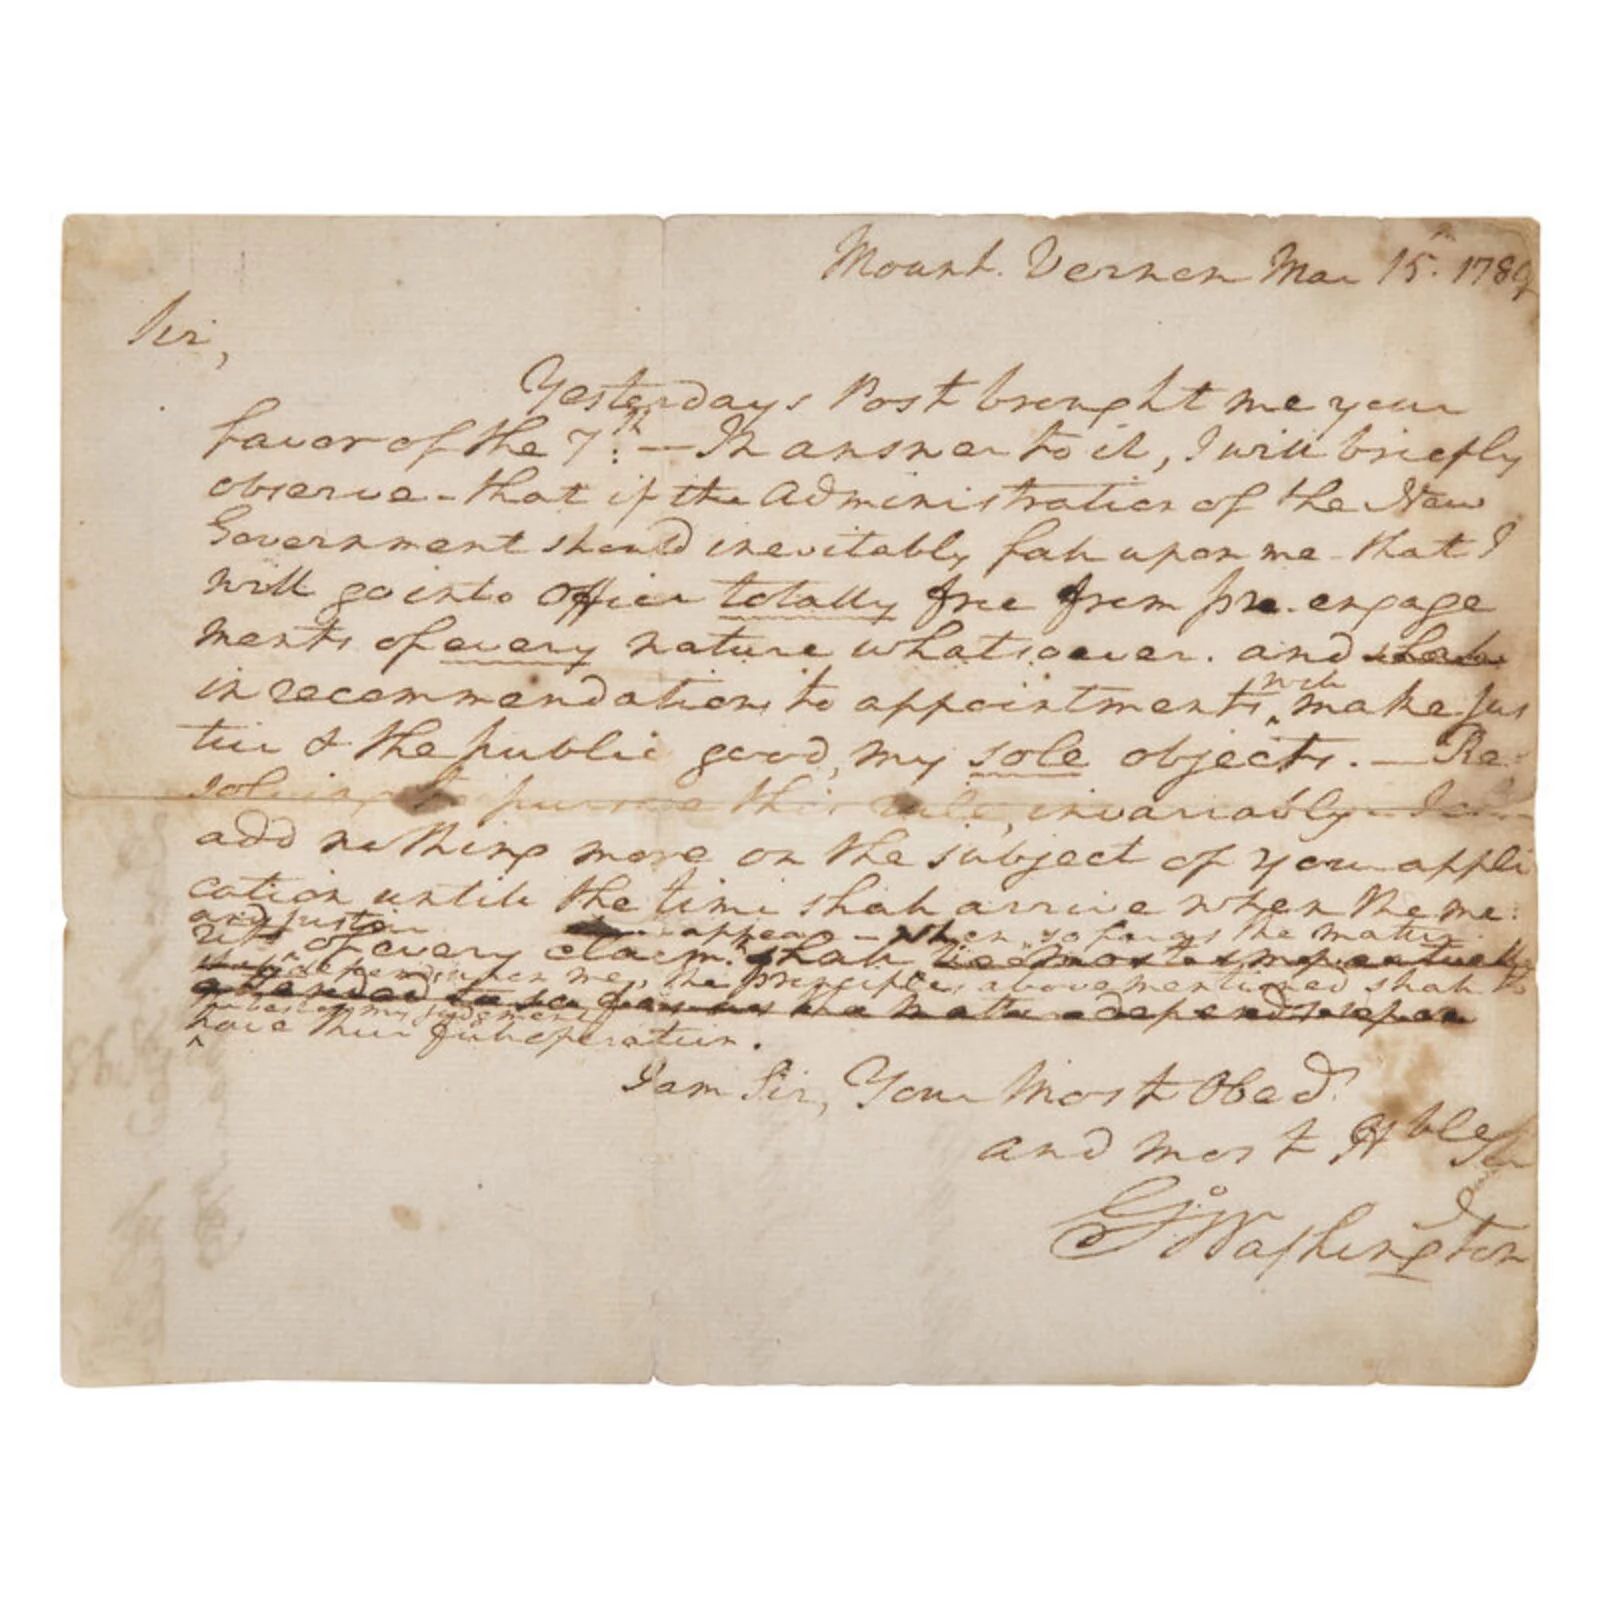 Mount. Vernon Mar 15th 1789
Sir,
Yesterdays Post brought me your
favor of the 7th. — In answer to it, I will briefly
observe - that if the Administration of the New
Government should inevitably fall upon me - that I
will go into Office totally free from pre-engage
ments of every nature whatsoever. and shall
in recommendations to appointments will make Jus
tice & the public good, my sole objects. — Re-
solving to pursue this rule, invariably - I
add nothing more on the subject of your appli
cation untill the time shall arrive when the me-
and justice appear - when so far as the matter
rits of every claim shall be most impartially
depends upon me, the principles abovementioned shall to
attended to so far as the matter depends upon
the best of my judgement
have their full operation.
I am Sir, Your Most Obed.
and most Hble Ser
Go: Washington